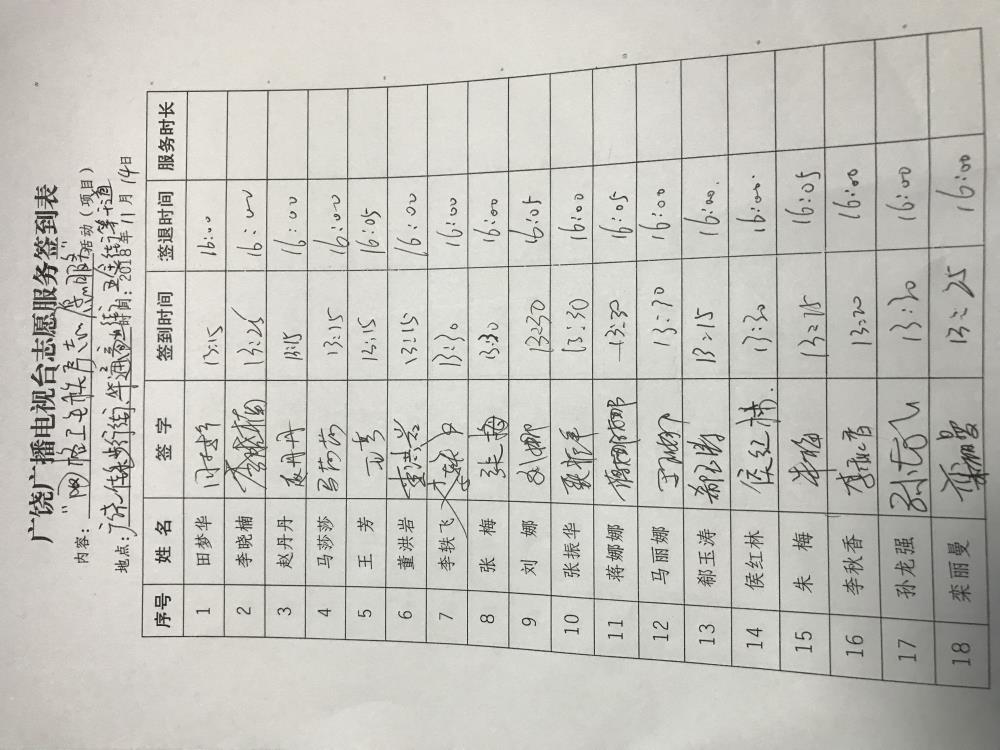 广饶广播电视台志愿服务签到表
内容： 活动（项目）
地点： 时间：2018年11月14日
序号 姓名 签字 签到时间 签退时间 服务时长
1 田梦华 田梦华 13:15 16:00
2 李晓楠 李晓楠 13:25 16:00
3 赵丹丹 赵丹丹 13:15 16:00
4 马莎莎 马莎莎 13:15 16:00
5 王芳 王芳 13:15 16:05
6 董洪岩 董洪岩 13:15 16:00
7 李轶飞 13:30 16:00
8 张梅 张梅 13:30 16:00
9 刘娜 刘娜 13:30 16:05
10 张振华 张振华 13:30 16:00
11 蒋娜娜 蒋娜娜 13:30 16:05
12 马丽娜 马丽娜 13:30 16:00
13 郗玉涛 郗玉涛 13:15 16:00
14 侯红林 侯红林 13:20 16:00
15 朱梅 朱梅 13:15 16:05
16 李秋香 李秋香 13:20 16:00
17 孙龙强 孙龙强 13:20 16:00
18 栾丽曼 栾丽曼 13:25 16:00